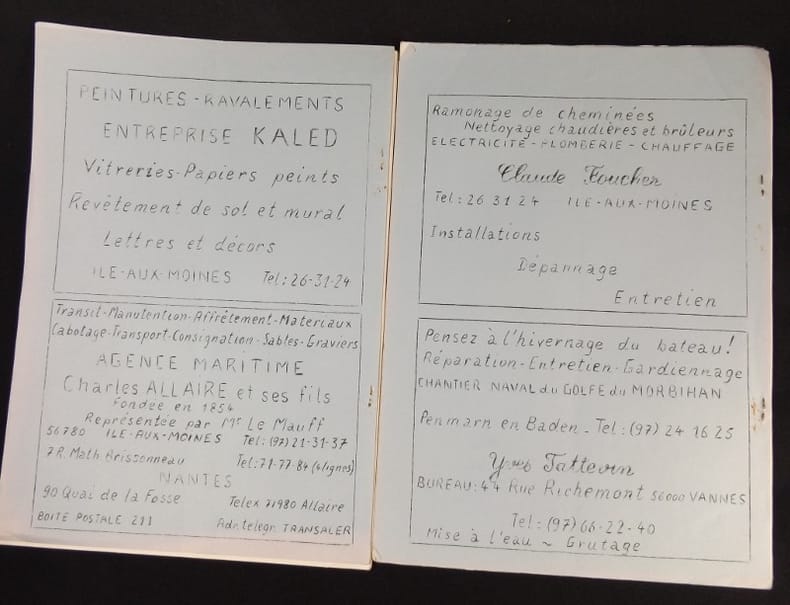 PEINTURES - RAVALEMENTS
ENTREPRISE KALED
Vitreries-Papiers peints
Revêtement de sol et mural
Lettres et décors
ILE-AUX-MOINES Tel: 26-31-24
Transit-Manutention-Affrêtement-Materiaux
Cabotage-Transport-Consignation-Sables-Graviers
AGENCE MARITIME
Charles ALLAIRE et ses fils
fondée en 1854
Représentée par Mr Le Mauff
56780 ILE-AUX-MOINES Tel: (97) 21-31-37
7 R. Math. Brissonneau Tel: 71-77-84 (4 lignes)
NANTES
90 Quai de la Fosse Telex 71980 Allaire
BOITE POSTALE 211 Adr. telegr. TRANSALER
Ramonage de cheminées
Nettoyage chaudières et brûleurs
ELECTRICITE - PLOMBERIE - CHAUFFAGE
Claude Foucher
Tel: 26 31 24 ILE-AUX-MOINES
Installations
Dépannage
Entretien
Pensez à l'hivernage du bateau!
Réparation-Entretien-Gardiennage
CHANTIER NAVAL du GOLFE du MORBIHAN
Penmarn en Baden - Tel: (97) 24 16 25
Yves Tattevin
BUREAU: 44 Rue Richemont 56000 VANNES
Tel: (97) 66-22-40
Mise à l'eau ~ Grutage